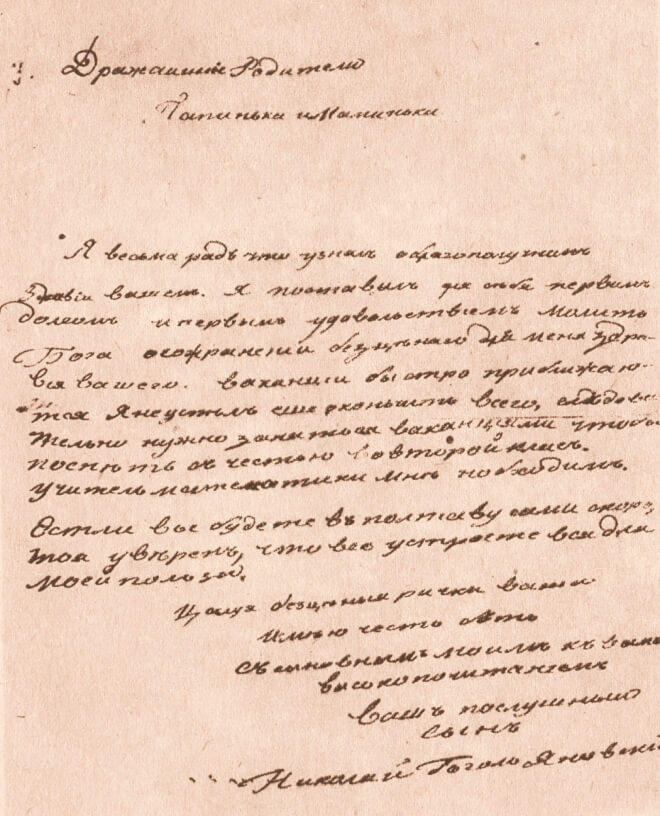 Дражайшие Родители
Папинька и Маминька
Я весьма радъ что узналъ о благополучномъ
здравіи вашемъ. Я поставилъ для себя первымъ
долгомъ и первымъ удовольствіемъ молить
Бога о сохраненіи безцѣннаго для меня здра-
вья вашего. Ваканціи быстро приближаю-
тся Я неуспѣлъ еще окончить всего, слѣдова-
тельно нужно заняться ваканціями чтобы
поспѣть съ честью во второй класъ.
Учитель математики мнѣ необходимъ.
Естли вы будете въ полтаву сами скоро,
тоя увѣренъ, что все устроете все для
моей пользы.
Цалуя безценныя ручки ваши
Имѣю честь быть
съ сыновнымъ моимъ къ вамъ
высокопочитаніемъ
вашъ послушный
сынъ
Николай Гоголь Яновскій